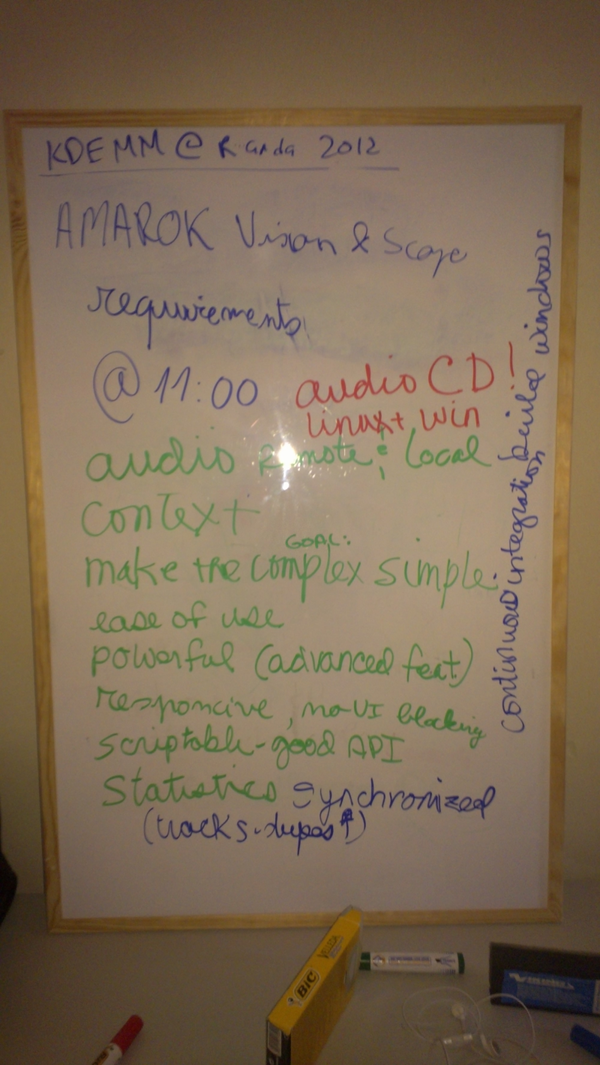 KDE MM @ Randa 2012
AMAROK Vision & Scope
requirements
@ 11:00 audio CD!
linux + win
audio remote + local
context
GOAL:
make the complex simple.
ease of use
powerful (advanced feat)
responcive, no-UI blocking
scriptable-good API
Statistics synchronized
(tracks-dupes
continuous integration build windows
BIC